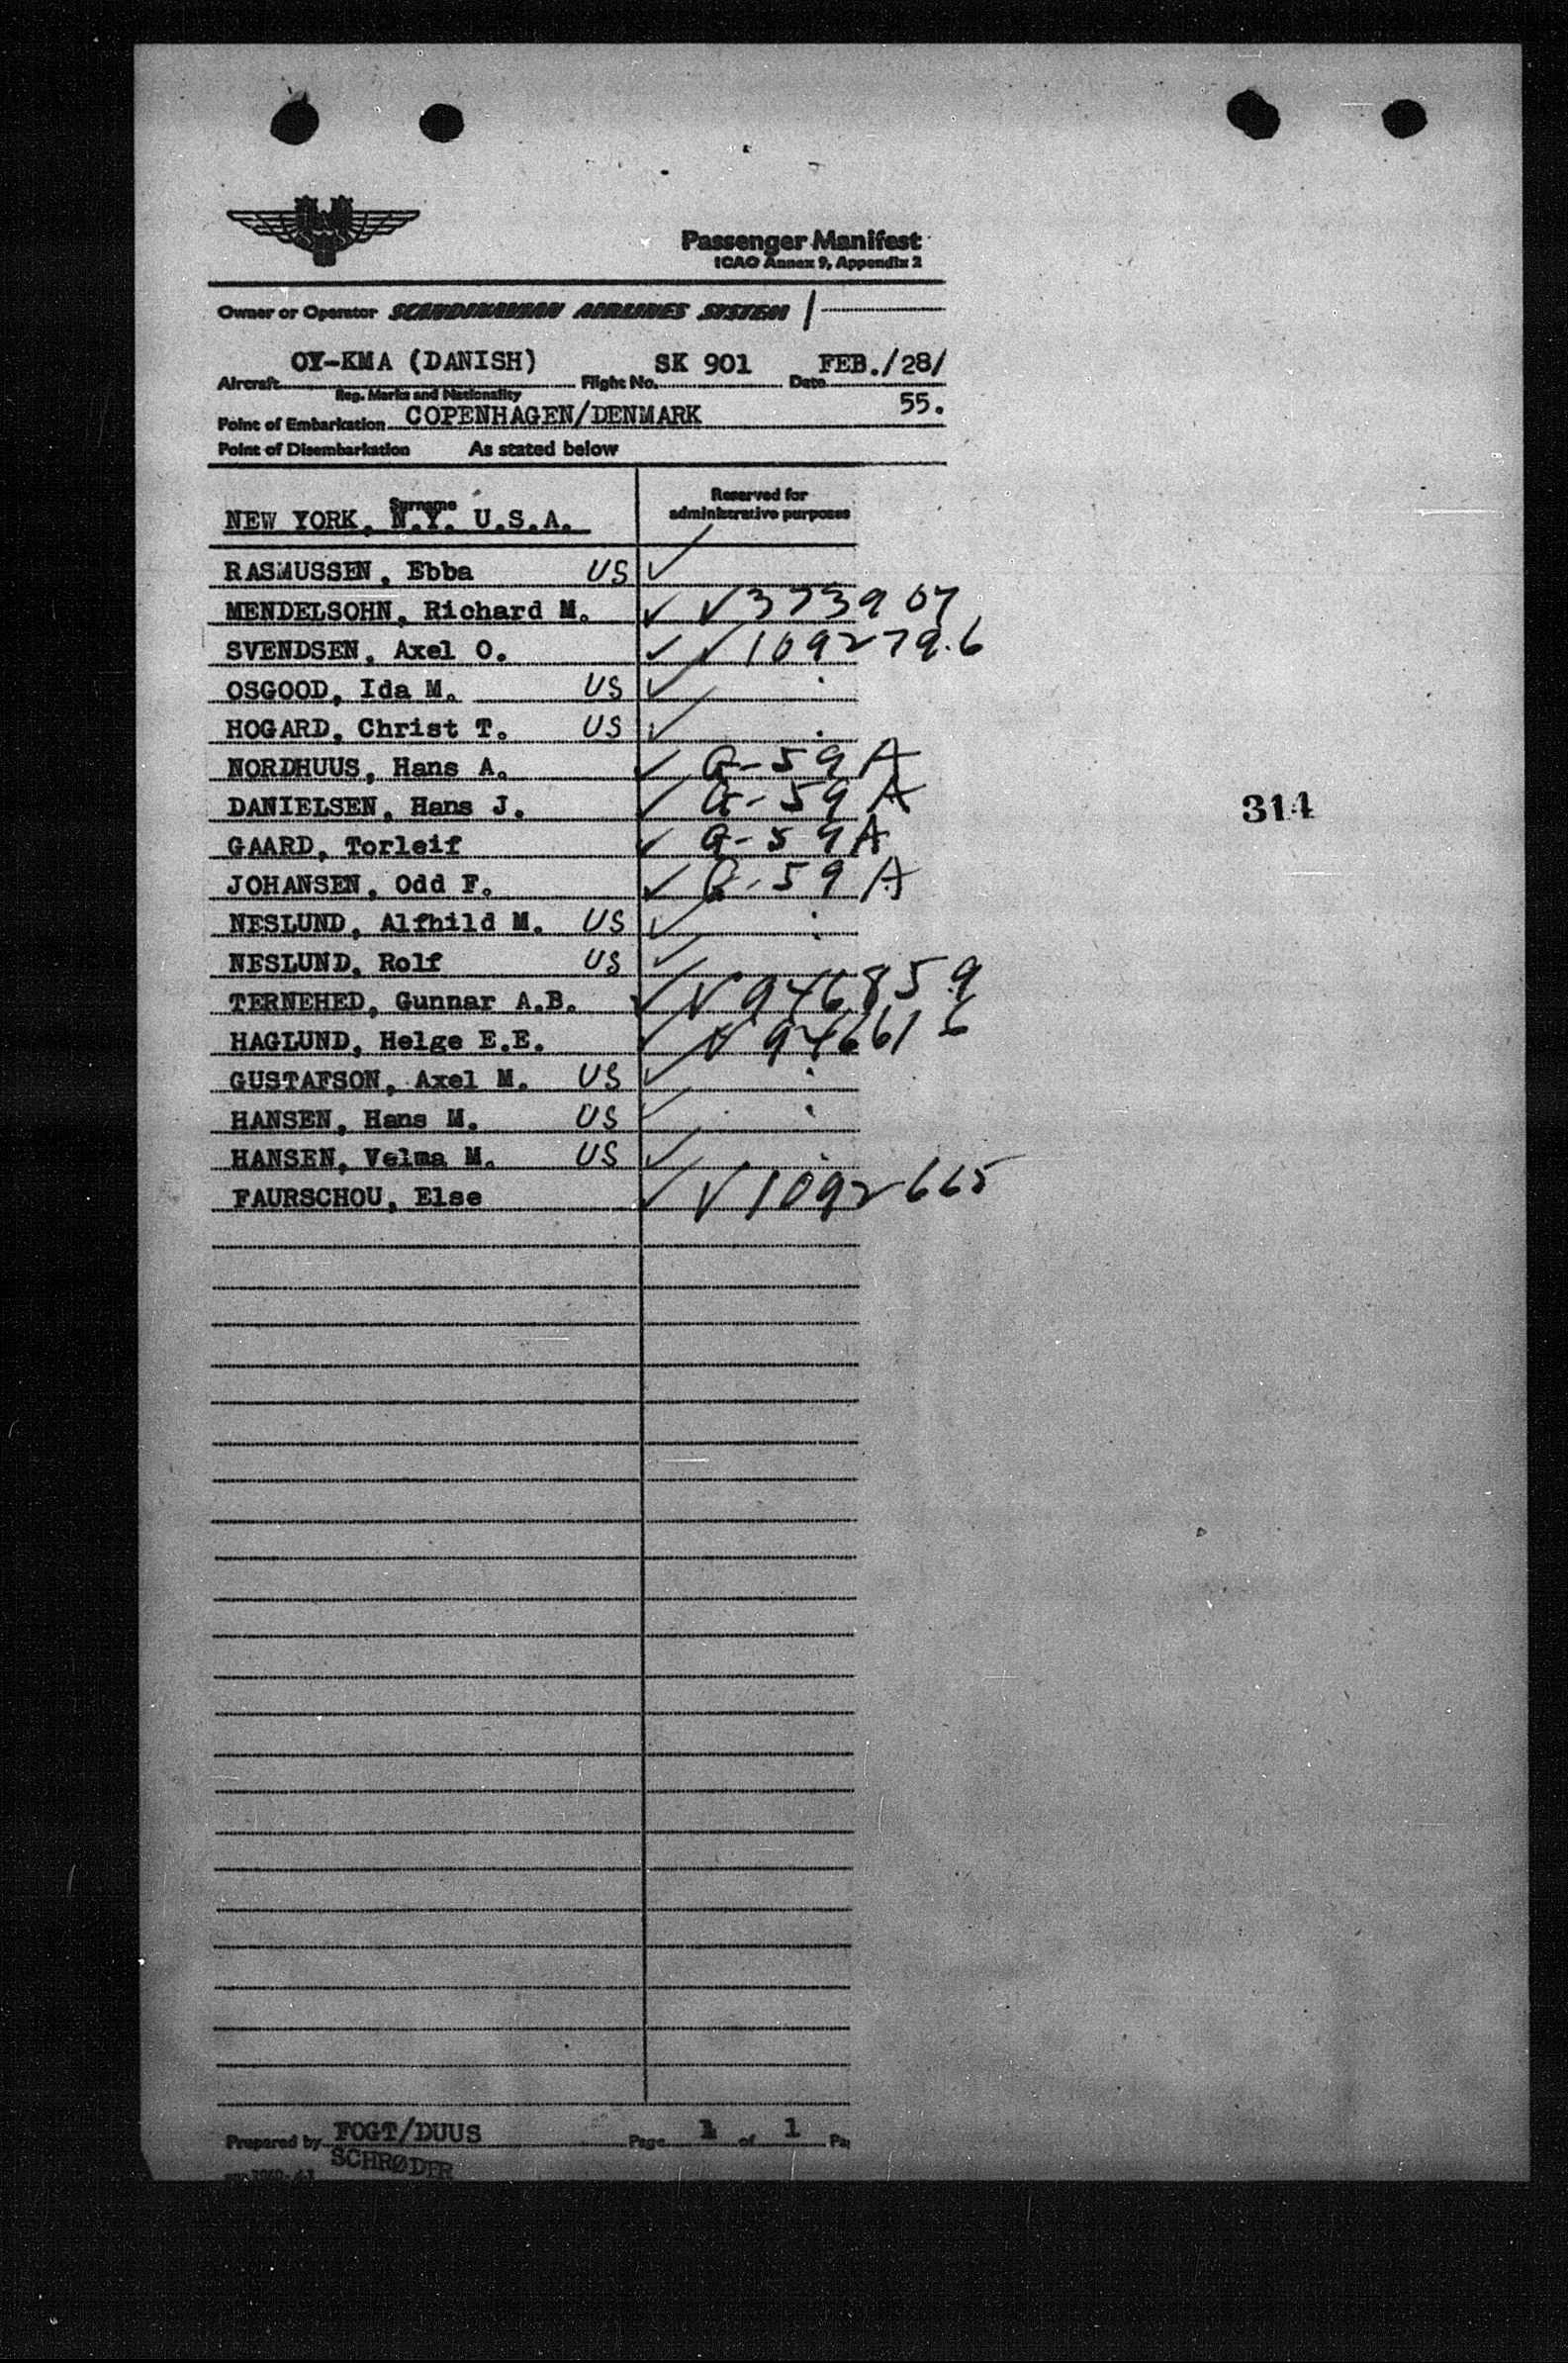 Passenger Manifest
ICAO Annex 9, Appendix 2
Owner or Operator SCANDINAVIAN AIRLINES SYSTEM
OY-KMA (DANISH) SK 901 FEB./28/
Aircraft Flight No. Date
Reg. Marks and Nationality
55.
Point of Embarkation COPENHAGEN/DENMARK
Point of Disembarkation As stated below
Surname Reserved for
NEW YORK, N.Y. U.S.A. administrative purposes
RASMUSSEN, Ebba US ✓
MENDELSOHN, Richard M. ✓ V 373907
SVENDSEN, Axel O. ✓ V 1092796
OSGOOD, Ida M. US ✓
HOGARD, Christ T. US ✓
NORDHUUS, Hans A. ✓ G-59 A
DANIELSEN, Hans J. ✓ G-59 A
314
GAARD, Torleif ✓ G-59 A
JOHANSEN, Odd F. ✓ G-59 A
NESLUND, Alfhild M. US ✓
NESLUND, Rolf US ✓
TERNEHED, Gunnar A.B. ✓ V 946859
HAGLUND, Helge E.E. ✓ V 946616
GUSTAFSON, Axel M. US ✓
HANSEN, Hans M. US ✓
HANSEN, Velma M. US ✓
FAURSCHOU, Else ✓ V 1092665
Prepared by FOGT/DUUS Page 1 of 1
SCHRØDER